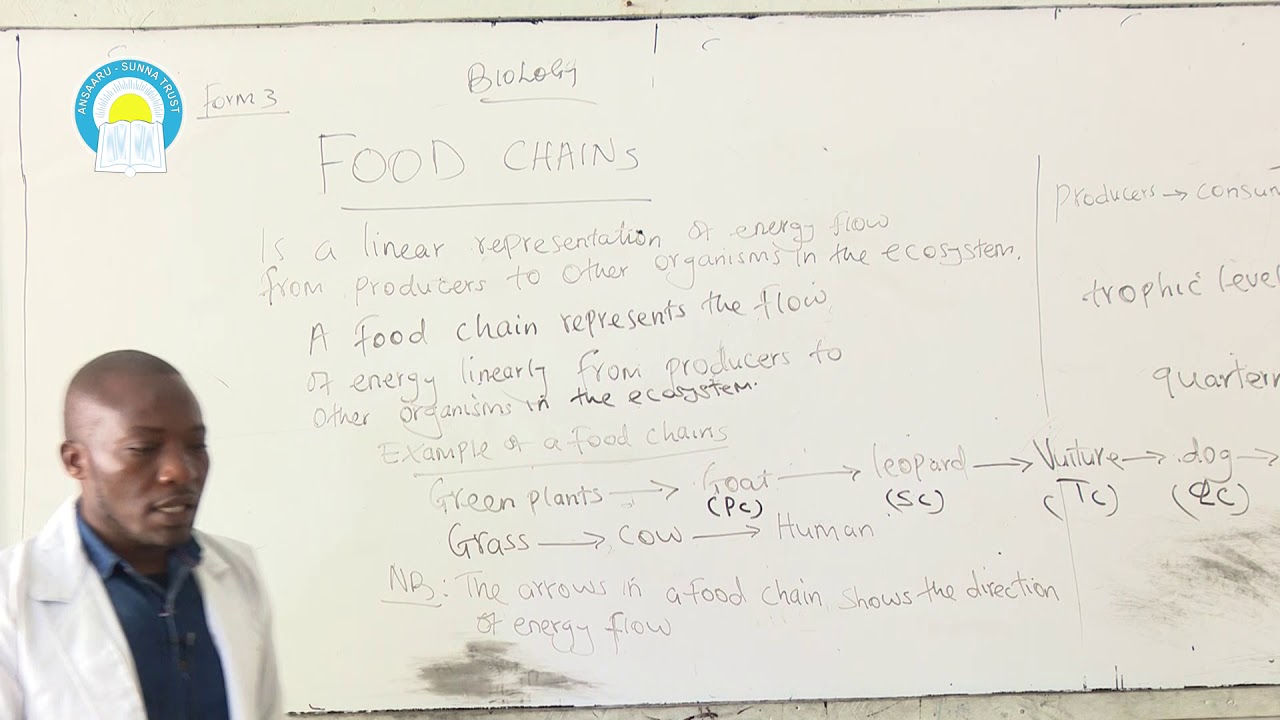 ANSAARU - SUNNA TRUST
Form 3
BIOLOGY
FOOD CHAINS
Is a linear representation of energy flow
from producers to other organisms in the ecosystem.
A food chain represents the flow
of energy linearly from producers to
other organisms in the ecosystem.
Example of a food chains
Green plants → Goat → leopard → Vulture → dog →
(PC) (SC) (TC) (QC)
Grass → Cow → Human
NB: The arrows in a food chain shows the direction
of energy flow
producers → consum
trophic level
quartern